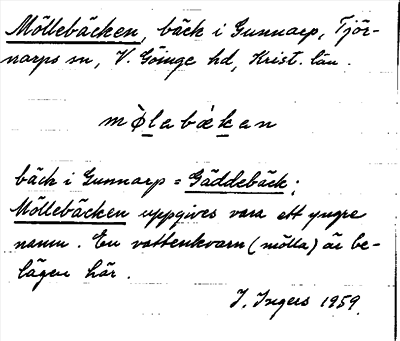 Möllebäcken, bäck i Gunnarp, Tjör-
narps sn, V. Göinge hd, Krist. län.
mø̀labækan
bäck i Gunnarp = Gäddebäck;
Möllebäcken uppgives vara ett yngre
namn. En vattenkvarn (mölla) är be-
lägen här.
J. Ingers 1959.